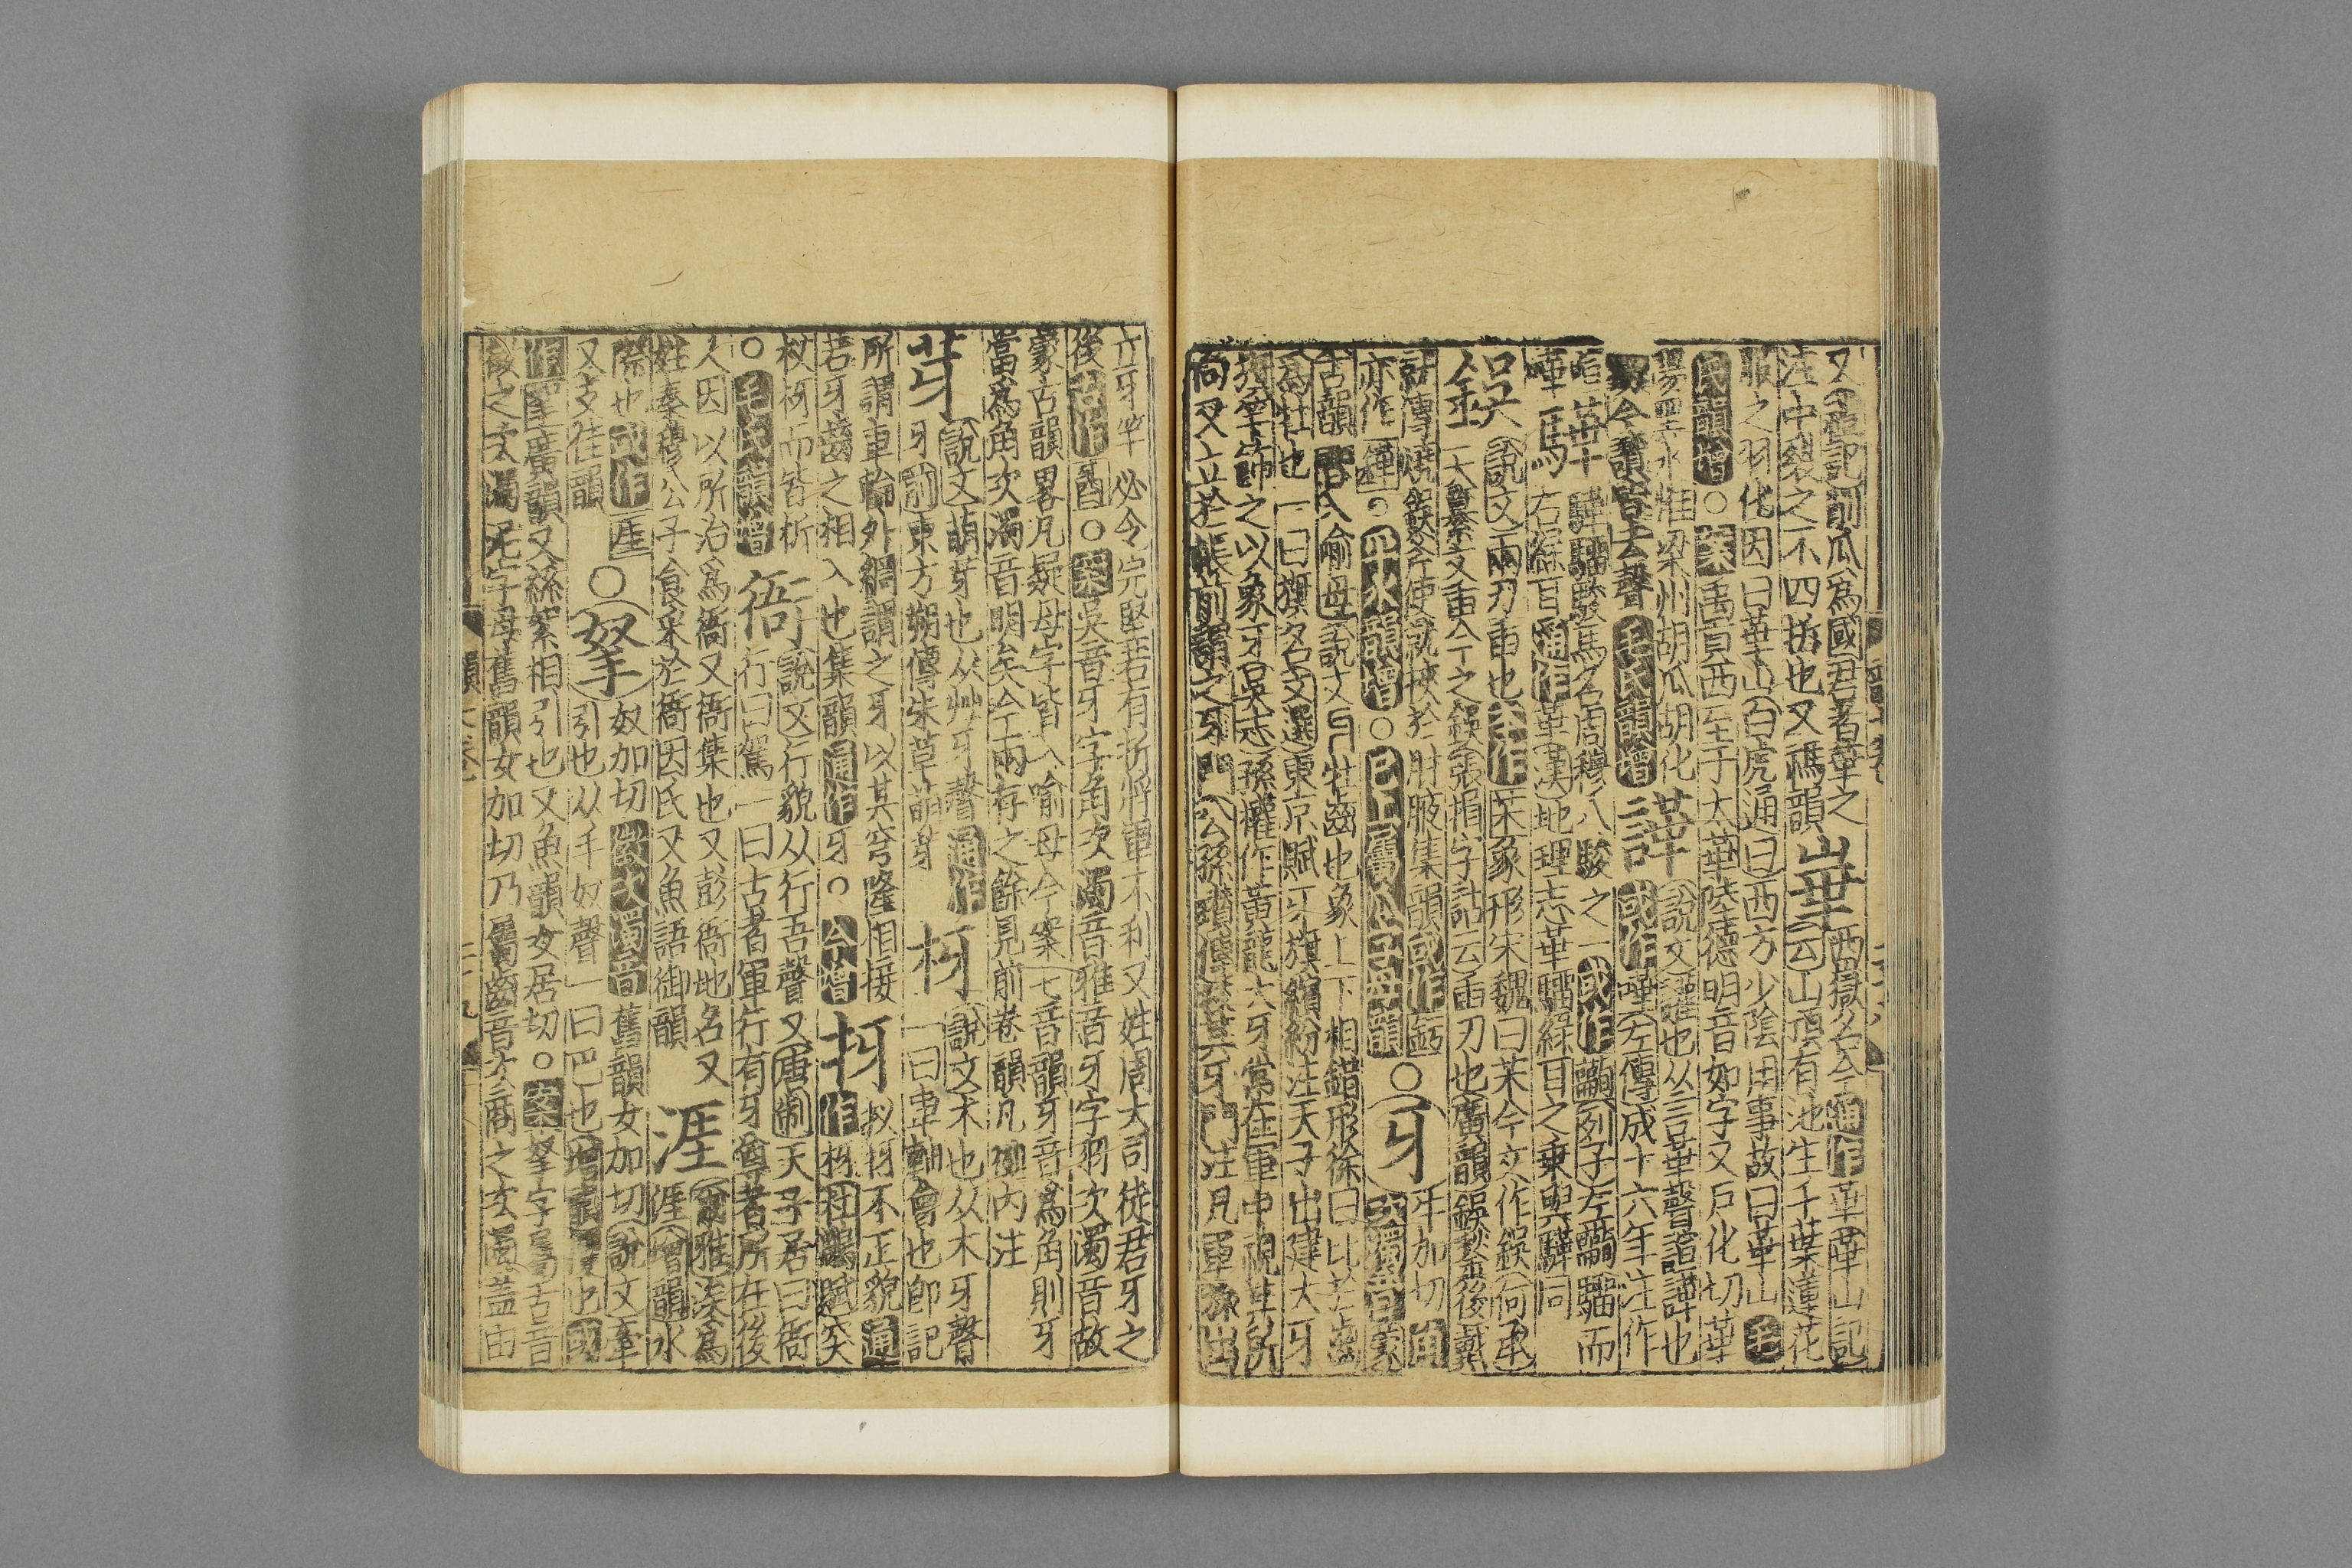 又禮記削瓜爲國君者華之
崋
西嶽名今通作華華山記
注中裂之不四拆也又禡韻
云山頂有池生千葉蓮花
服之羽化因曰華山白虎通曰西方少陰用事故曰華山毛
氏韻增○案禹貢西至于太華陸德明音如字又戶化切華
陽黑水惟梁州胡瓜胡化
譁
說文讙也从言華聲諠譁也
今讀皆去聲毛氏韻增
或作嘩左傳成十六年注作
驊
驊騮駿馬名周穆八駿之一或作
列子左驊騮而
右綠耳通作華漢地理志華騮綠耳之乘與驊同
鋘
說文兩刃臿也本作
象形宋魏曰今文作鋘何承
天纂文臿今之鋘張揖字詁云臿刃也廣韻鋘鍫金後戴
就傳燒鋘斧使就挾於肘腋集韻或作釫
亦作鏵○
○已上屬
字母韻
○牙
牛加切角
次濁音蒙
古韻
入喻母說文
牡齒也象上下相錯形徐曰比於齒
爲牡也一曰旗名文選東京賦牙旗繽紛注天子出建大牙
旗竿飾之以象牙吳志孫權作黃龍大牙常在軍中視其所
向又立於帳前謂之牙門公孫瓚傳
其牙門注凡軍
出
立牙竿必令完堅若有折將軍不利又姓周大司徒君牙之
後古作
○案吳音牙字角次濁音雅音牙字羽次濁音故
蒙古韻畧凡疑母字皆入喻母今案七音韻牙音爲角則牙
當爲角次濁音明矣今兩存之餘見前卷韻凡
內注
芽
說文萌芽也从艸牙聲通作
牙前東方朔傳朱草萌芽
枒
說文木也从木牙聲
一曰車輞會也卽記
所謂車輪外輞謂之牙以其穹隆相接
若牙齒之相入也集韻通作牙○今增
㧎
㧎不正貌通
作枒杜鵰賦突
杈枒而皆折
○毛氏韻增
衙
說文行貌从行吾聲又唐制天子居曰衙
行曰駕一曰古者軍行有牙尊者所在後
人因以所治爲衙又衙集也又彭衙地名又
姓秦穆公子食采於衙因氏又魚語御韻
涯
爾雅涘爲
涯增韻水
際也或作厓
又支佳韻
○拏
奴加切徵次濁音舊韻女加切說文牽
引也从手奴聲一曰巴也
作挐廣韻又絲絮相引也又魚韻女居切○案拏字屬舌音
徵之次濁
字母舊韻女加切乃屬齒音次商之次濁蓋由